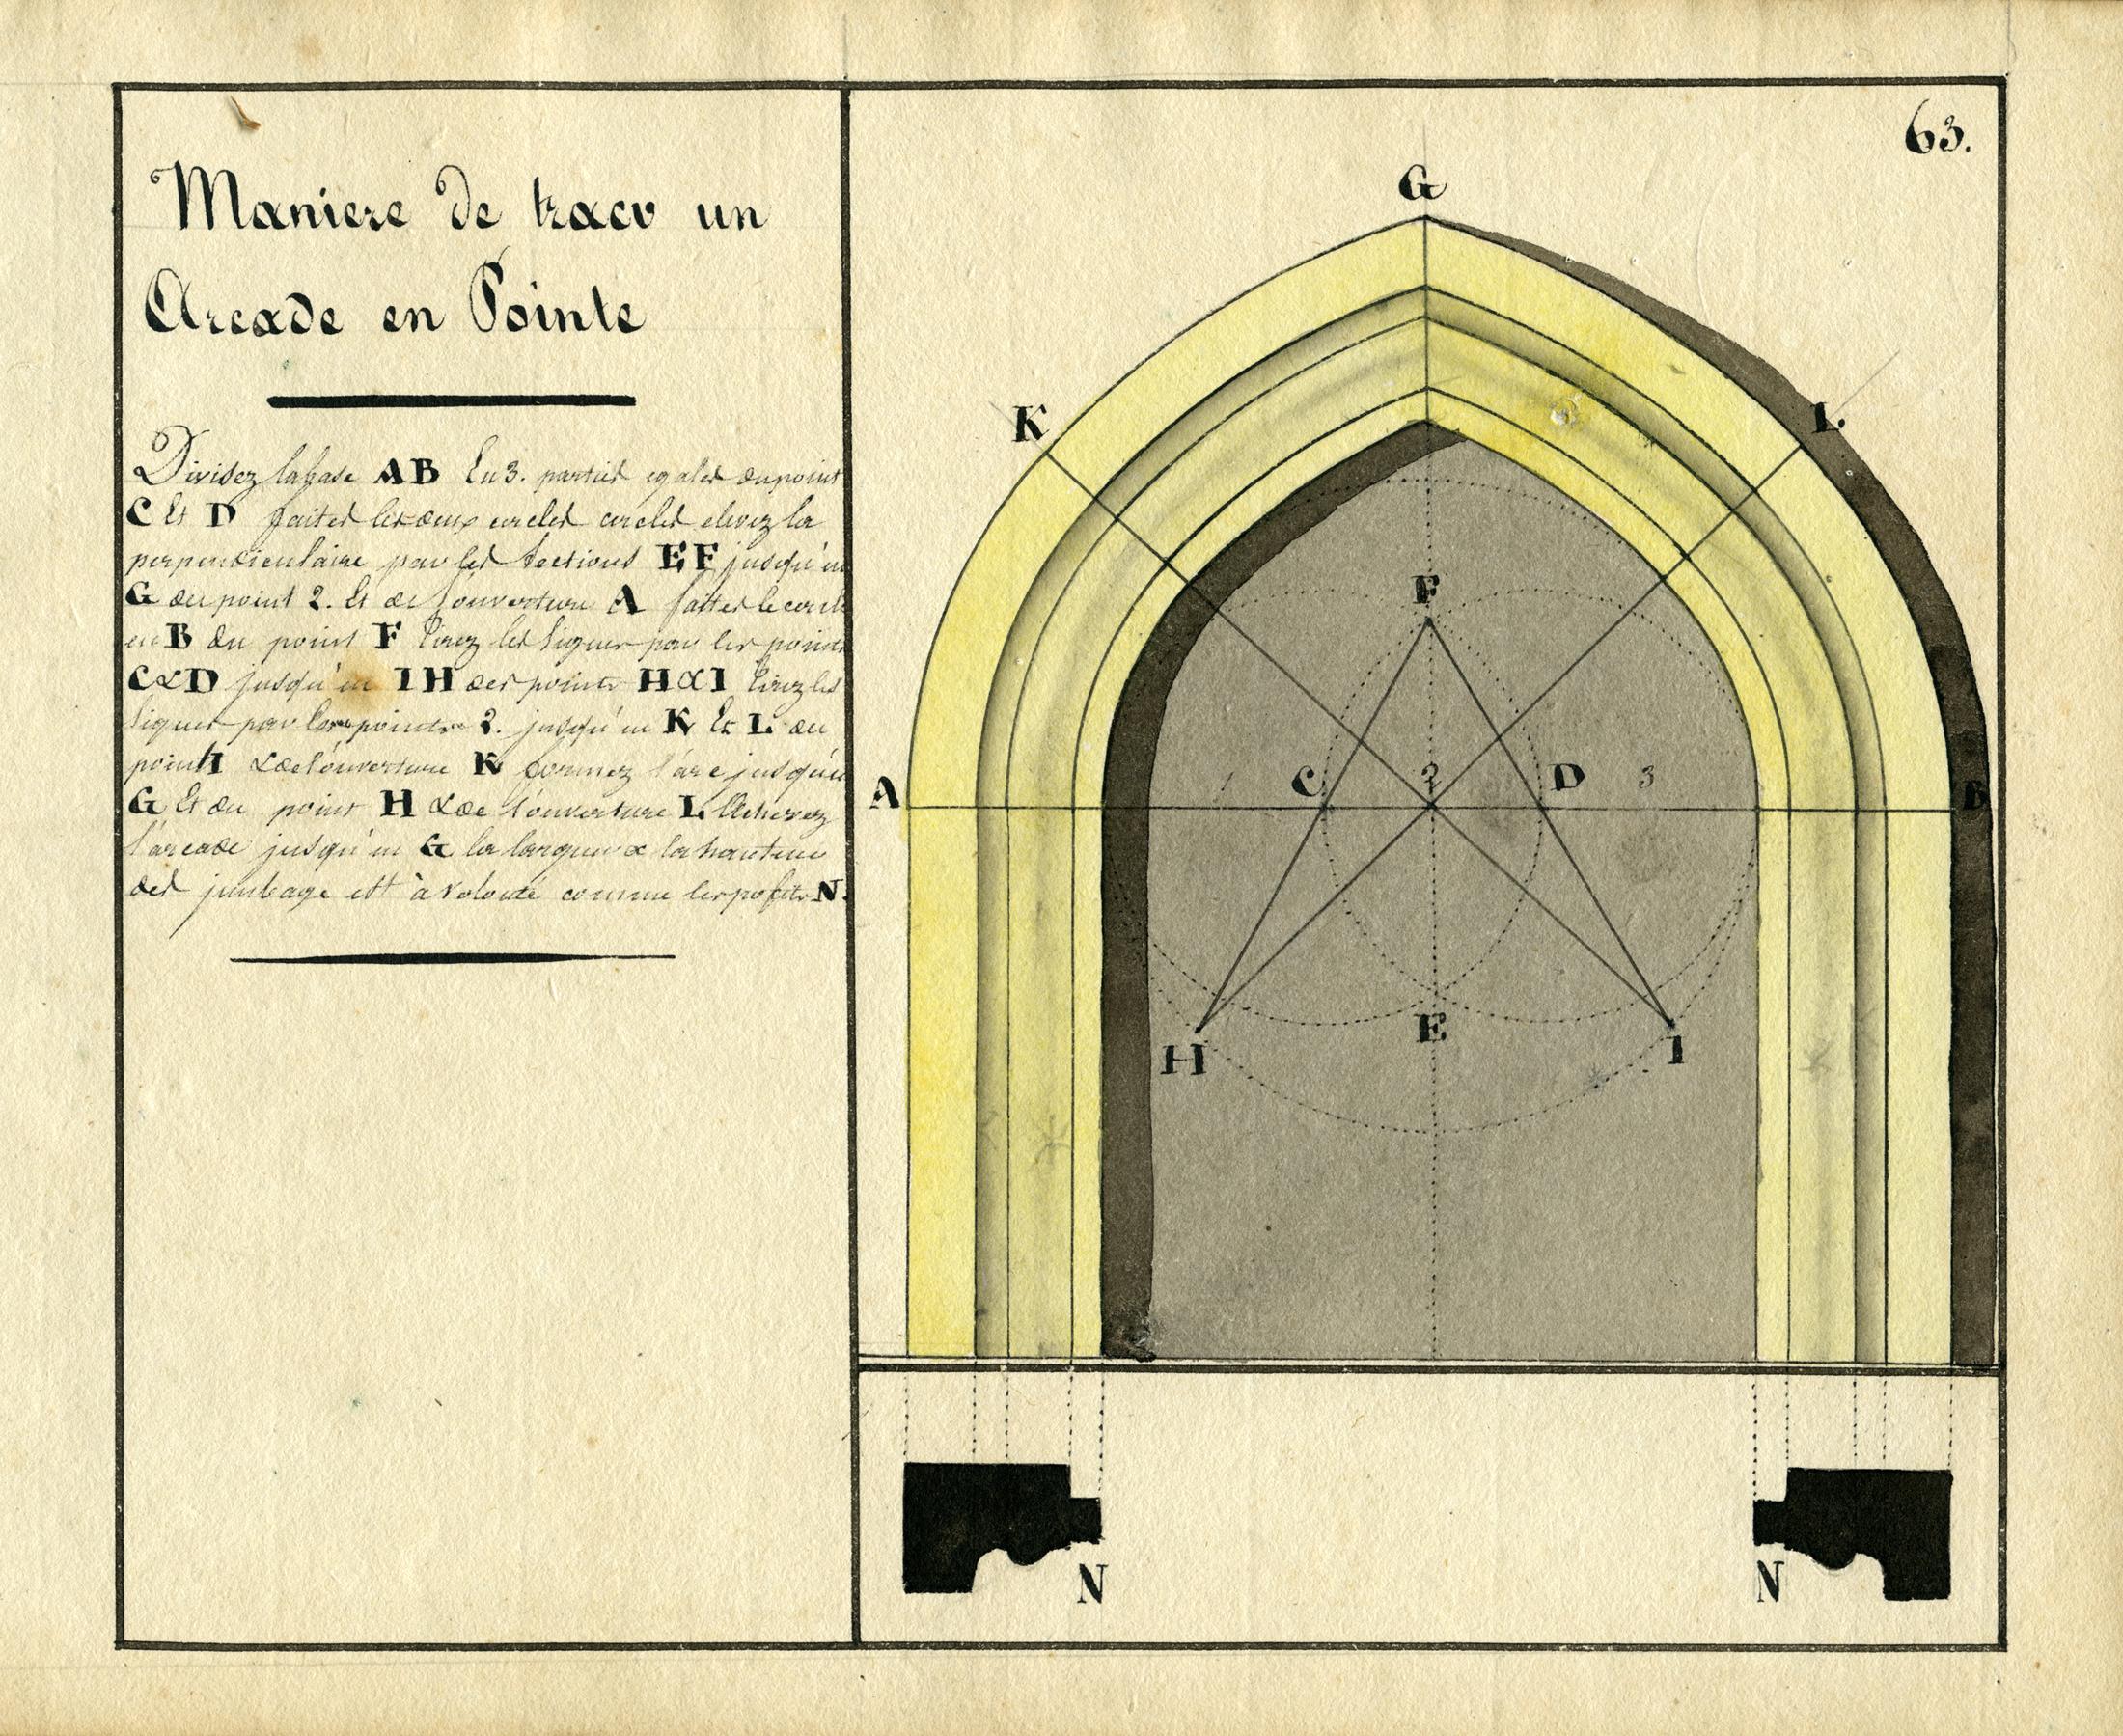 63.
Maniere de tracer un
Arcade en Pointe
Divisez la base AB En 3. parties egales du point
C Et D faites les deux circles circles elevez la
perpendiculaire par les sections EF jusqu'en
G du point 2. Et de l'ouverture A faites le cercle
en B du point F Tirez les lignes par les points
C&D jusqu'en IH des points H&I Tirez les
lignes par les points 2. jusqu'en K Et L du
point I &de l'ouverture K formez l'arc jusqu'en
G Et du point H &de l'ouverture L Achevez
l'arcade jusqu'en G la largeur & la hauteur
des jambage est à volonté comme les profils N.
G
K
L
F
A
1
C
2
D
3
B
H
E
I
N
N